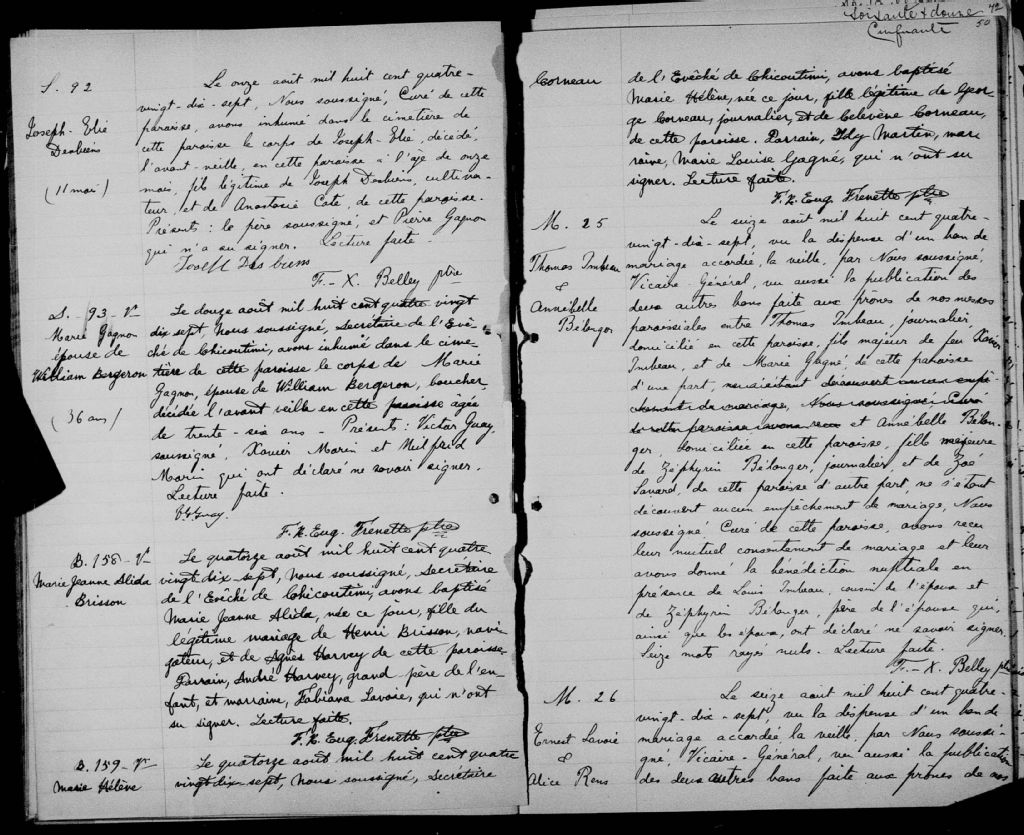 S. 92
Joseph-Elié
Desbiens
(11 mois)
Le onze août mil huit cent quatre-
vingt-dix-sept, Nous soussigné, Curé de cette
paroisse, avons inhumé dans le cimetière de
cette paroisse le corps de Joseph-Elié, décédé,
l'avant-veille, en cette paroisse à l'âge de onze
mois, fils légitime de Joseph Desbiens, cultiva-
teur, et de Anastasie Coté, de cette paroisse.
Présents: le père soussigné, et Pierre Gagnon
qui n'a su signer. Lecture faite.
Joseph Desbiens
F.-X. Belley ptre
S. 93 - Vt
Marie Gagnon
épouse de
William Bergeron
(36 ans)
Le douze août mil huit cent quatre vingt
dix sept, Nous soussigné, Secrétaire de l'Evê-
ché de Chicoutimi, avons inhumé dans le cime-
tière de cette paroisse le corps de Marie
Gagnon, épouse de William Bergeron, boucher,
décédée l'avant veille en cette paroisse âgée
de trente-six ans - Présents: Victor Guay,
soussigné, Xavier Morin et Milfrid
Morin qui ont déclaré ne savoir signer.
Lecture faite.
V. Guay.
F. X. Eug. Frenette ptre
B. 158 - Vt
Marie Jeanne Alida
Brisson
Le quatorze août mil huit cent quatre
vingt dix-sept, nous soussigné, Secrétaire
de l'Evêché de Chicoutimi, avons baptisé
Marie Jeanne Alida, née ce jour, fille du
légitime mariage de Henri Brisson, navi-
gateur, et de Agnes Harvey de cette paroisse.
Parrain, André Harvey, grand père de l'en-
fant, et marraine, Fabiana Lavoie, qui n'ont
su signer. Lecture faite.
F. X. Eug. Frenette ptre
B. 159 - Vt
Marie Hélène
Le quatorze août mil huit cent quatre
vingt dix sept, nous soussigné, Secrétaire
Soixante & douze 72
Cinquante 50
Corneau
de l'Evêché de Chicoutimi, avons baptisé
Marie Hélène, née ce jour, fille légitime de Geor-
ge Corneau, journalier, et de Corneau,
de cette paroisse. Parrain, Martin, mar-
raine, Marie Louise Gagné, qui n'ont su
signer. Lecture faite.
F. X. Eug. Frenette ptre
M. 25
Thomas Imbeau
&
Annébelle
Bélanger
Le seize août mil huit cent quatre-
vingt-dix-sept, vu la dispense d'un ban de
mariage accordée, la veille, par Nous soussigné,
Vicaire-Général, vu aussi la publication des
deux autres bans faite aux prônes de nos messes
paroissiales entre Thomas Imbeau, journalier,
domicilié en cette paroisse, fils majeur de feu Xavier
Imbeau, et de Marie Gagné, de cette paroisse
d'une part, ne s'étant découvert aucun empê-
chement du mariage, Nous soussigné Curé
de cette paroisse avons reçu et Annébelle Bélan-
ger, domiciliée en cette paroisse, fille majeure
de Zéphyrin Bélanger, journalier, et de Zoé
Savard, de cette paroisse d'autre part, ne s'étant
découvert aucun empêchement de mariage, Nous
soussigné Curé de cette paroisse, avons reçu
leur mutuel consentement de mariage et leur
avons donné la bénédiction nuptiale en
présence de Louis Imbeau, cousin de l'époux et
de Zéphyrin Bélanger, père de l'épouse qui,
ainsi que les époux, ont déclaré ne savoir signer.
Seize mots rayés nuls. Lecture faite.
F.-X. Belley ptre
M. 26
Ernest Lavoie
&
Alice Rens
Le seize août mil huit cent quatre-
vingt-dix-sept, vu la dispense d'un ban de
mariage accordée la veille, par Nous soussi-
gné, Vicaire-Général, vu aussi la publication
des deux autres bans faite aux prônes de nos